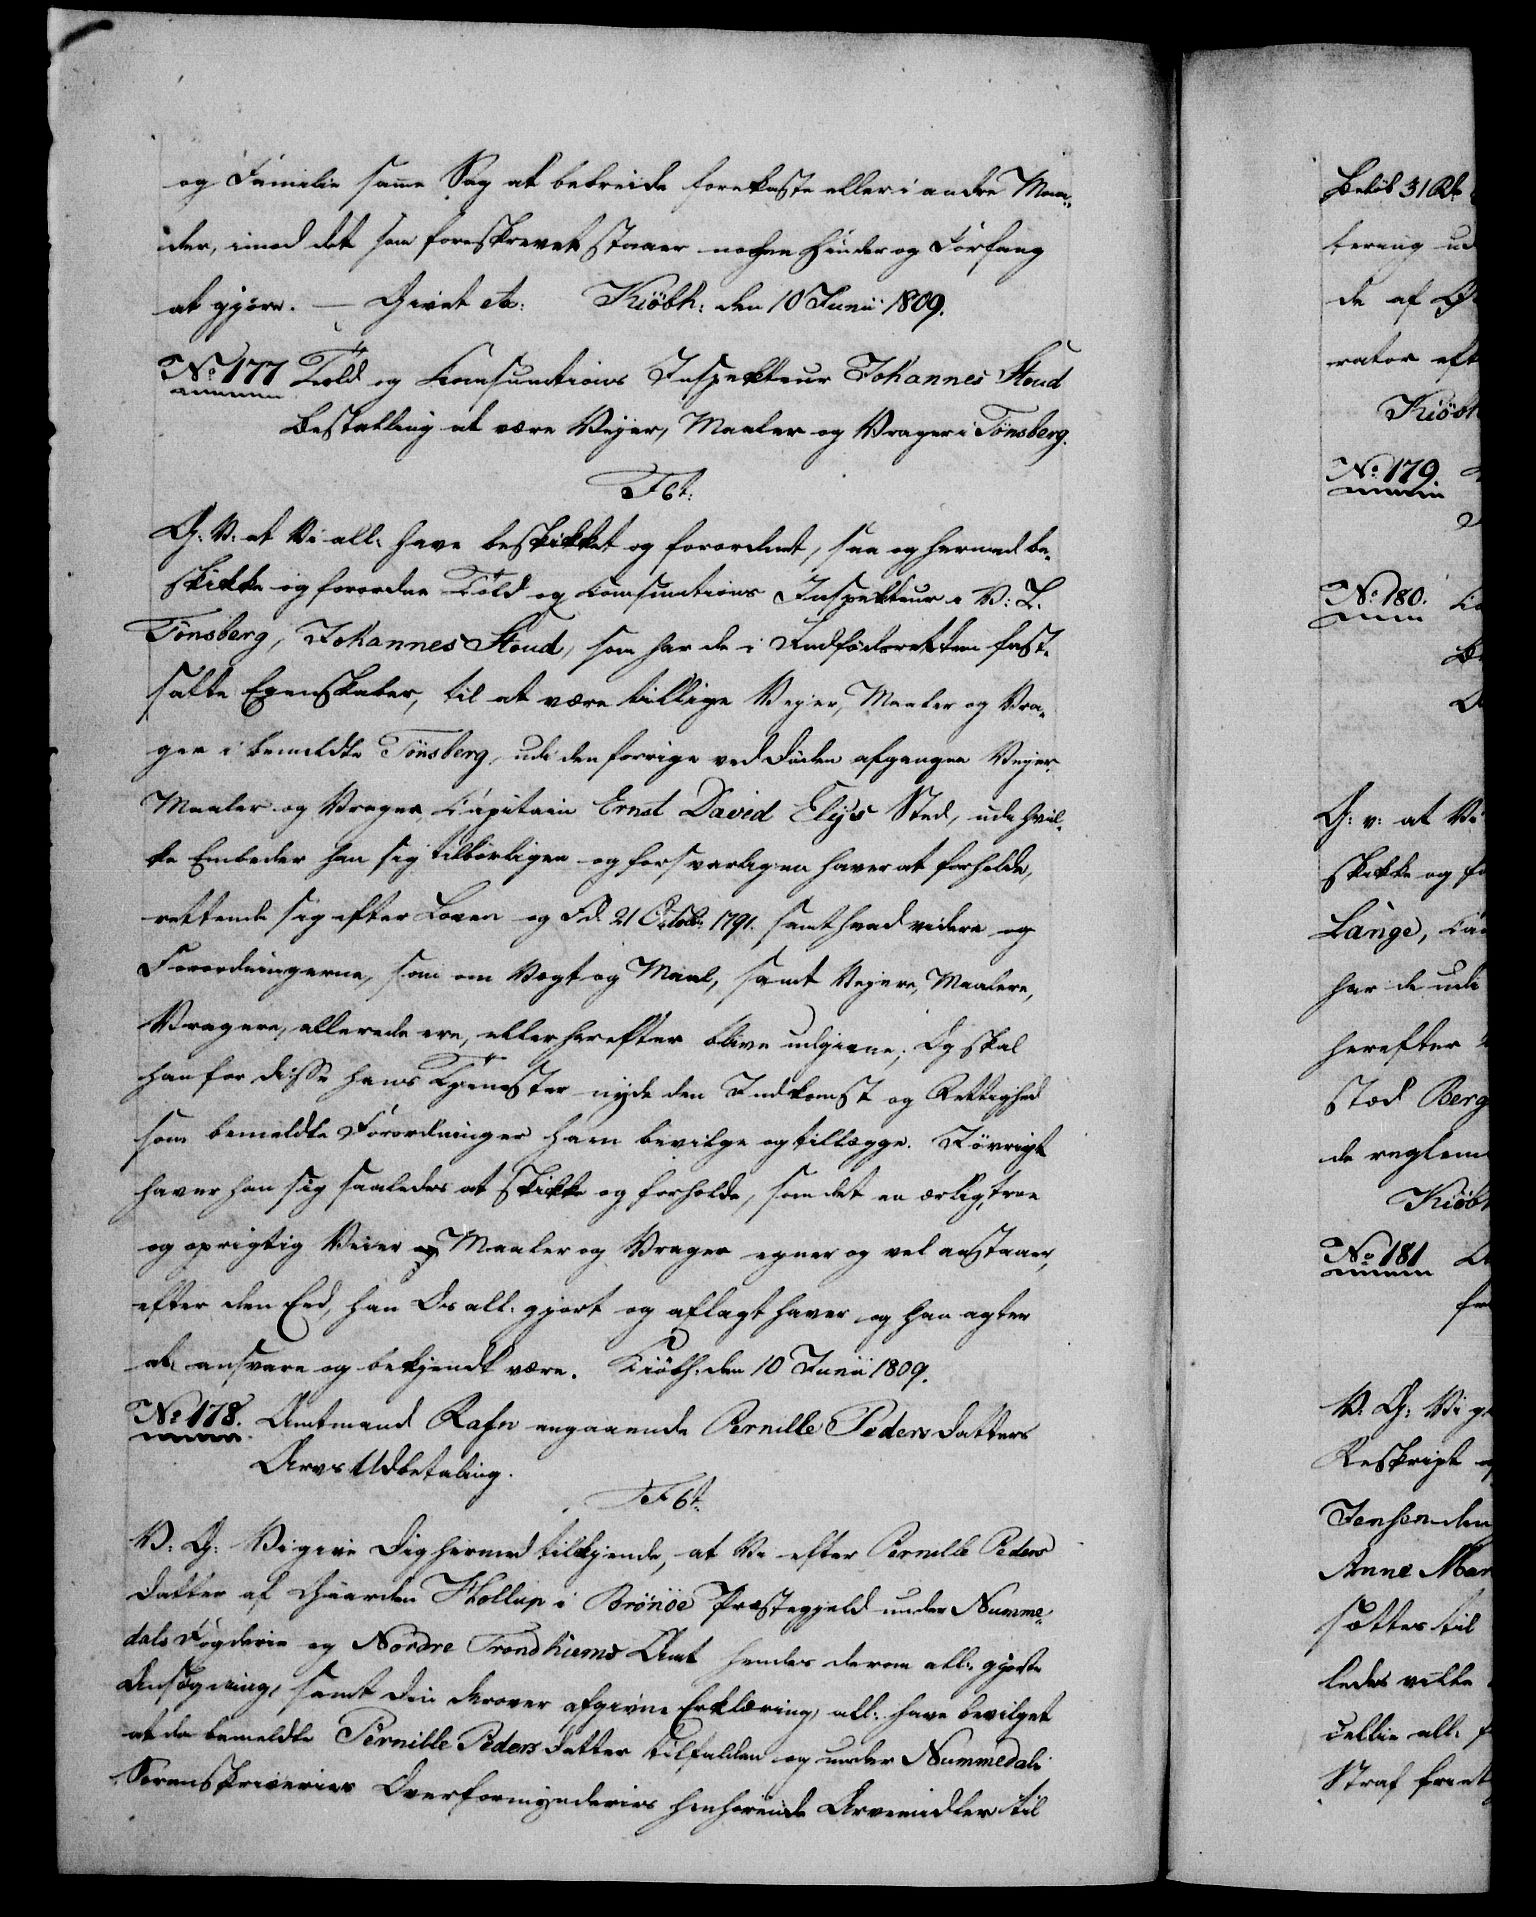 og Familie samme Sag at bebreide forekaste eller i andre Maa-
der, imod det som foreskrevet staaer nogen Hinder og Forfang
at gjøre. — Givet etc: Kiøbh: den 10 Junii 1809.
No 177 Told og Consumtions Inspekteur Johannes Stoud
Bestalling at være Vejer, Maaler og Vrager i Tønsberg.
F 6t.
G: V: at Vi all: have beskikket og forordnet, saa og hermed be-
skikke og forordne Told og Consumtions Inspekteur i V: L.
Tønsberg, Johannes Stoud, som har de i Indfødsretten fast-
satte Egenskaber, til at være tillige Vejer, Maaler og Vra-
ger i bemeldte Tønsberg, udi den forrige ved Døden afgangen Vejer
Maaler og Vrager Capitain Ernst David Elys Sted, udi hvil-
ke Embeder han sig tilbørligen og forsvarligen haver at forholde,
rettende sig efter Loven og Fd. 21 Octobr 1791. samt hvad videre og
Forordningerne, som om Vægt og Maal, samt Vejere, Maalere,
Vragere, allerede ere, eller herefter blive udgivne; Og skal
han for disse hans Tjenester nyde den Indkomst og Rettighed
som bemeldte Forordninger ham bevilge og tillægge. Iøvrigt
haver han sig saaledes at skikke og forholde, som det en ærlig, troe
og oprigtig Veier og Maaler og Vrager egner og vel anstaaer,
efter den Eed, han Os all: gjort og aflagt haver og han agter
at ansvare og bekjendt være. Kiøbh: den 10 Junii 1809.
No 178. Amtmand Rafn angaaende Pernille Pedersdatters
Arvs Udbetaling.
F 6t
V: G: Vi give Dig hermed tilkjende, at Vi efter Pernille Peders
Datter af Gaarden Hollup i Brönöe Præstegjeld under Numme-
dals Fogderie og Nordre Trondhiems Amt hendes derom all: gjorte
Ansøgning, samt din derover afgivne Erklæring, all: have bevilget
at de bemeldte Pernille Pedersdatter tilfaldne og under Nummedals
Sorenskriveries Overformynderies henhørende Arvemidler til
Beløb 31 Rd
tering ud
de af
rator eft
Kiøbh
No 179.
No 180.
G: v: at Vi
skikke og fo
Lange,
har de udi
herefter
stod Berg
de reglem
Kiøbh
No 181
V: G: Vi g
Reskript
Jensen den
Anne Mar
sættes til
ledes vilke
all:
Straf